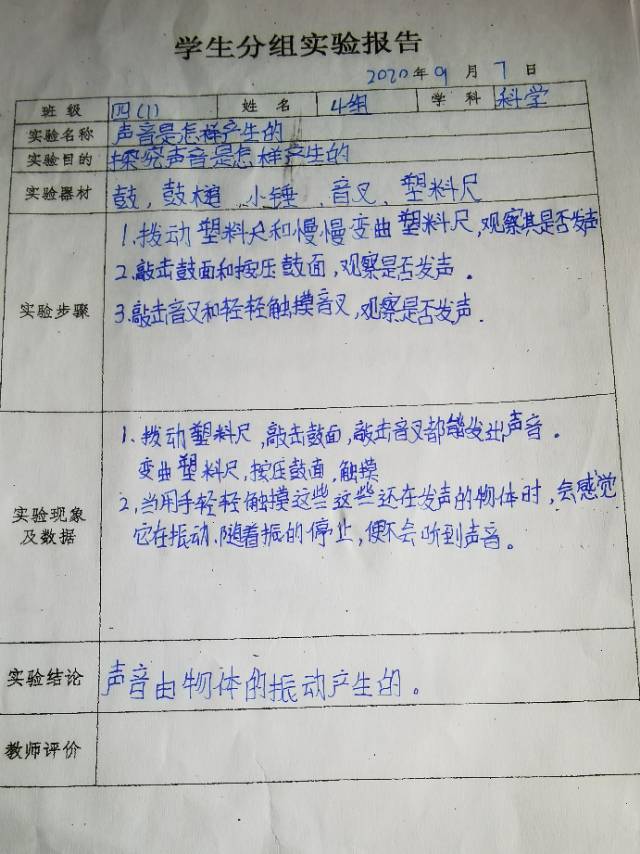 学生分组实验报告
2020年9月7日
班级 四(1) 姓名 4组 学科 科学
实验名称 声音是怎样产生的
实验目的 探究声音是怎样产生的
实验器材 鼓、鼓槌、小锤、音叉、塑料尺
实验步骤
1.拨动塑料尺和慢慢变曲塑料尺,观察其是否发声
2.敲击鼓面和按压鼓面,观察是否发声。
3.敲击音叉和轻轻触摸音叉,观察是否发声.
实验现象及数据
1.拨动塑料尺,敲击鼓面,敲击音叉都能发出声音。
变曲塑料尺,按压鼓面,触摸
2,当用手轻轻触摸这些这些还在发声的物体时,会感觉
它在振动.随着振的停止,便不会听到声音。
实验结论 声音由物体的振动产生的。
教师评价